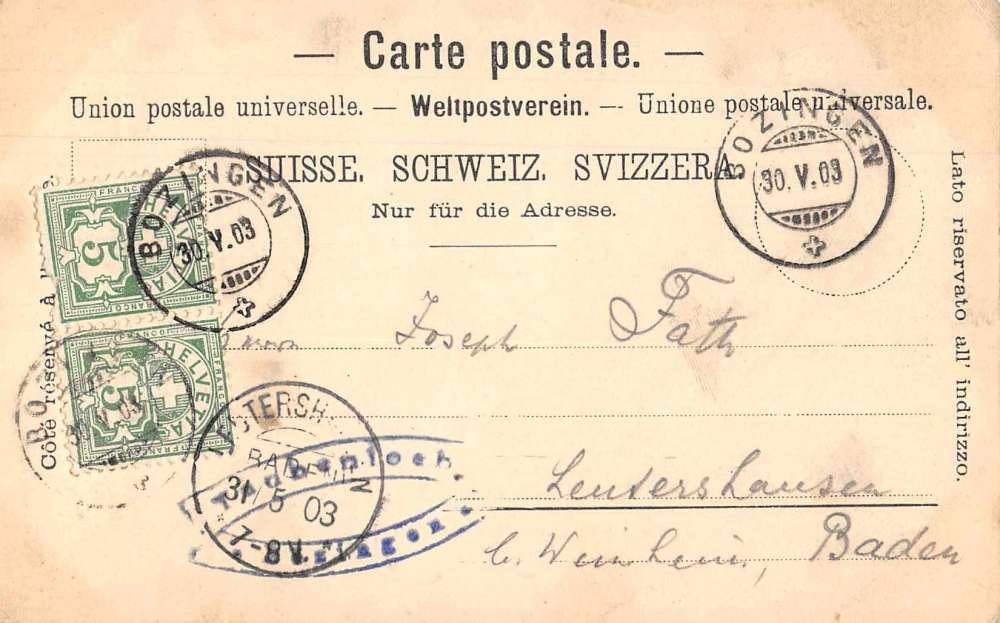 — Carte postale. —
Union postale universelle. — Weltpostverein. — Unione postale universale.
SUISSE. SCHWEIZ. SVIZZERA.
Nur für die Adresse.
Côté réservé à
Lato riservato all' indirizzo.
FRANCO HELVETIA 5 FRANCO
FRANCO HELVETIA 5 FRANCO
BOZINGEN
30.V.03
BOZINGEN
30.V.03
BO
03
Joseph Fath
Leutershausen
b. Weinheim, Baden
BADEN
31/5 03
7-8V.